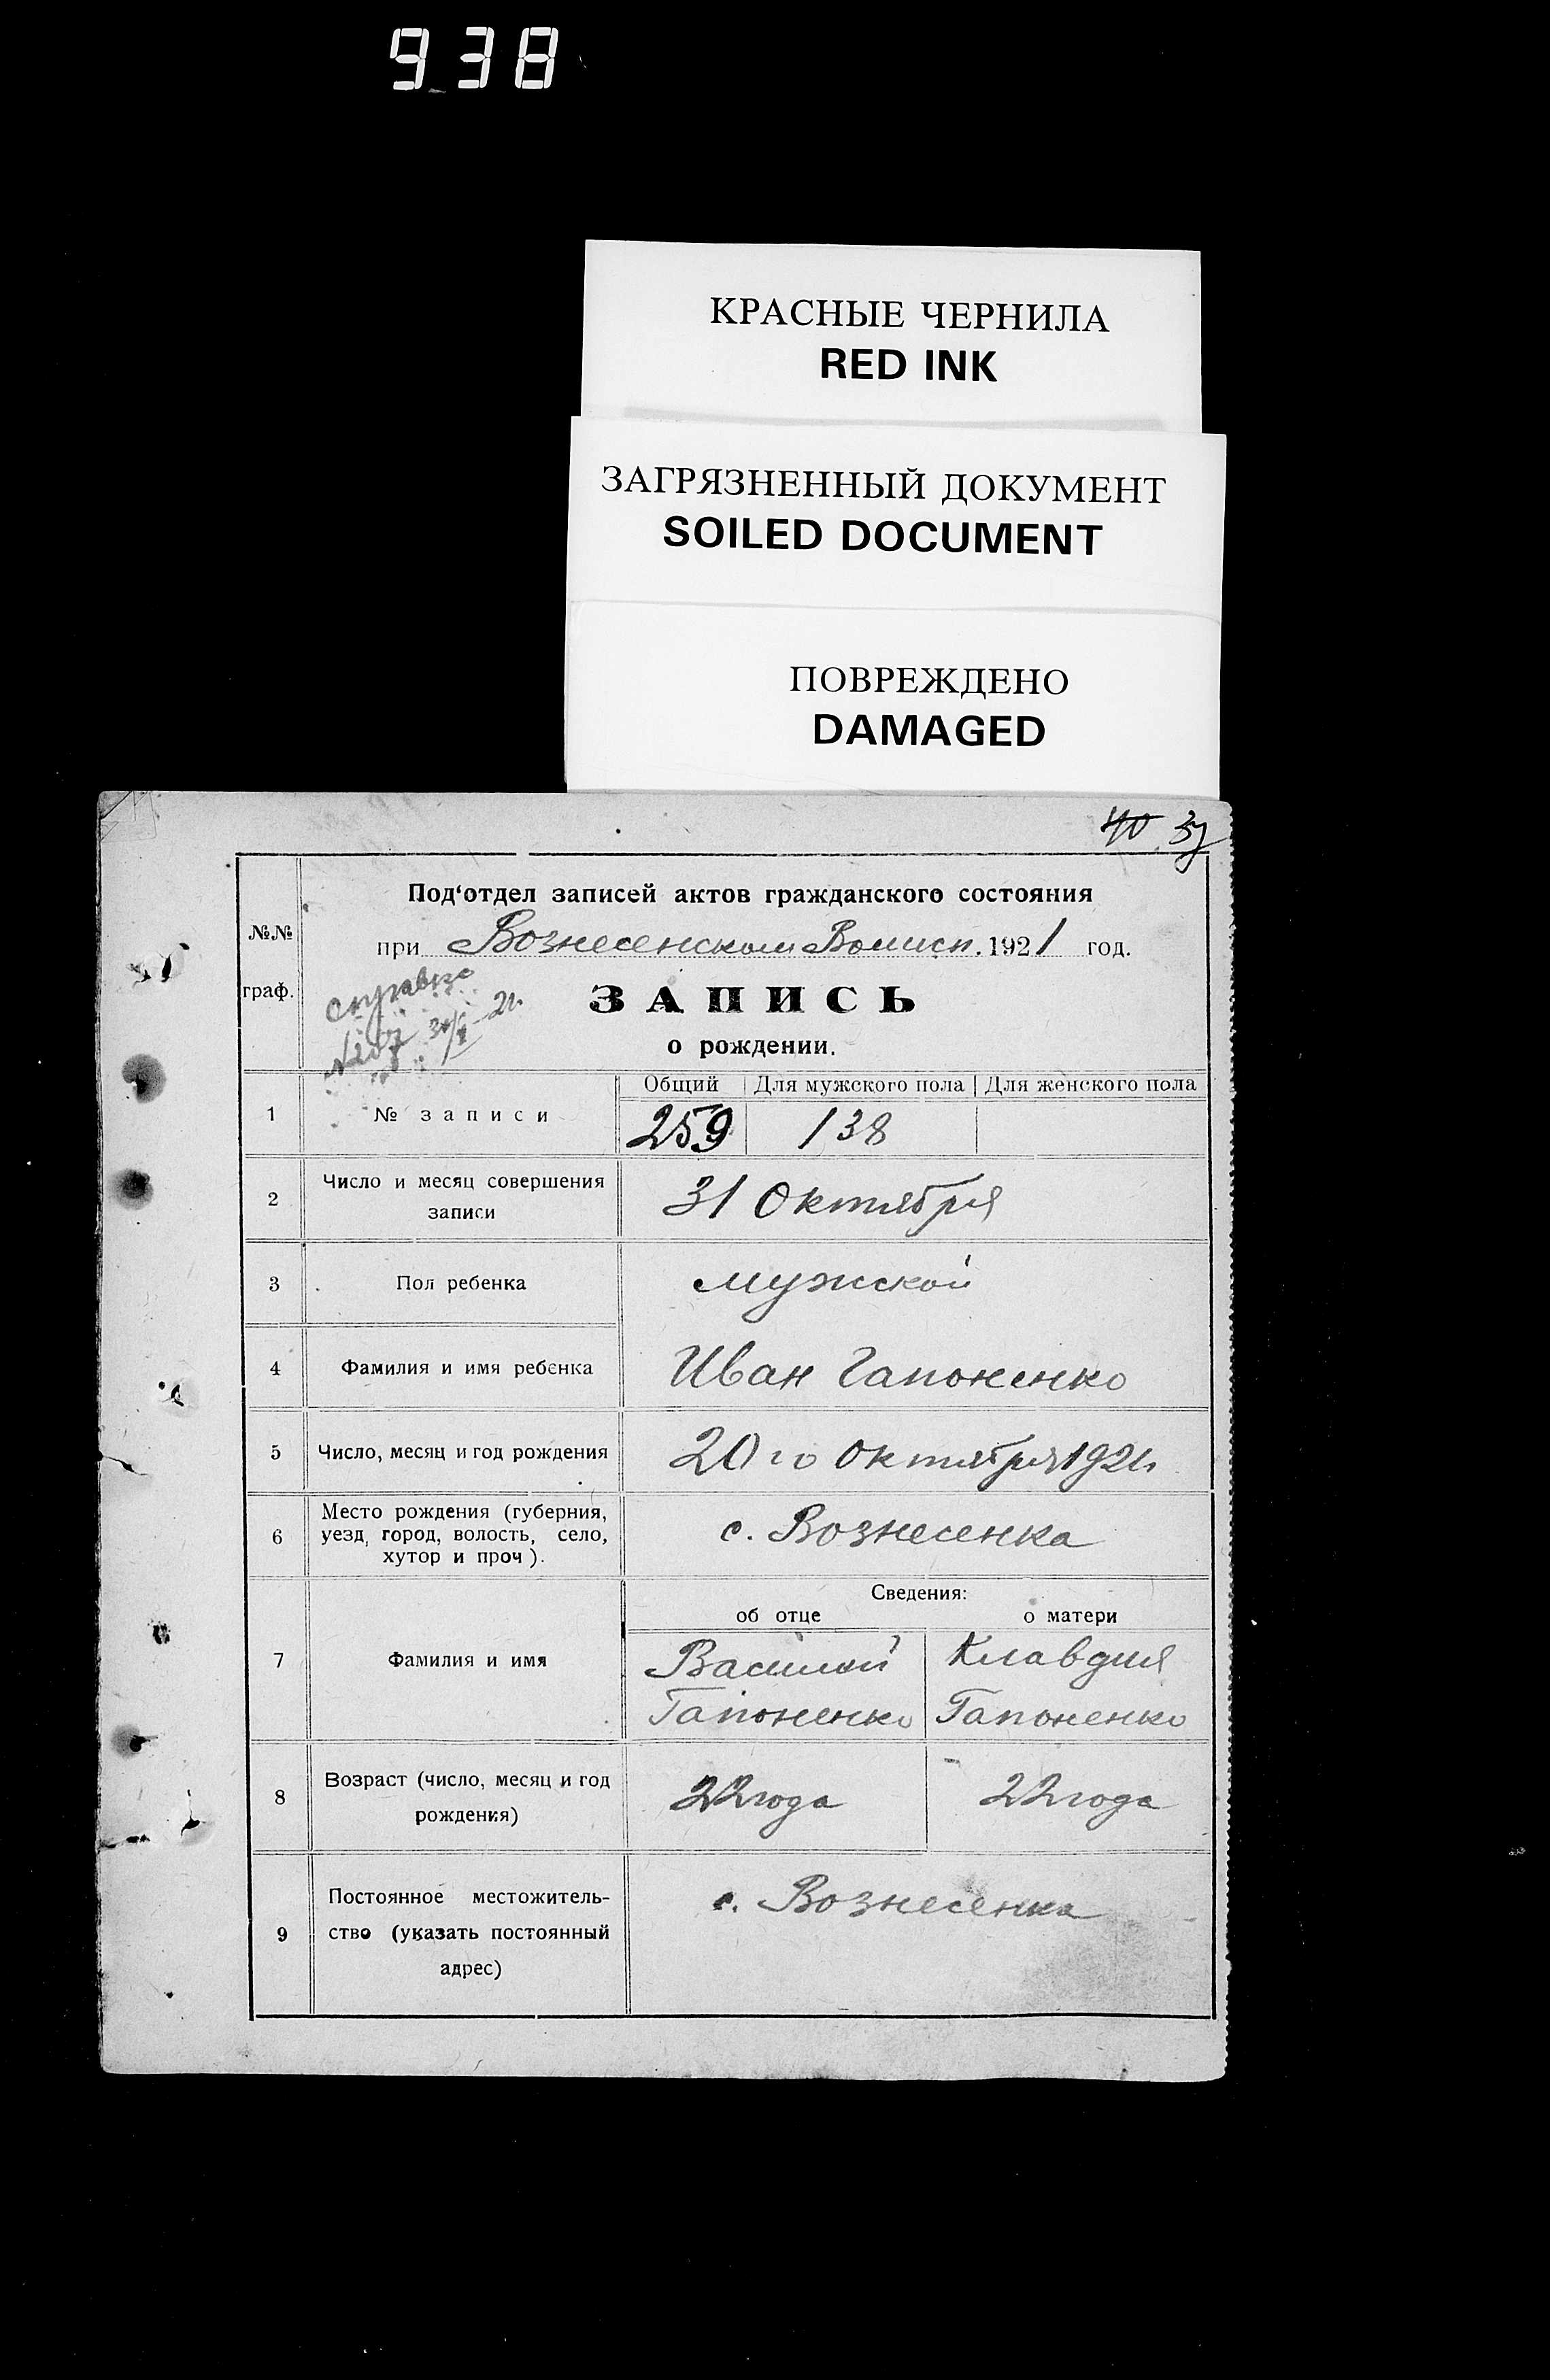 938
КРАСНЫЕ ЧЕРНИЛА
RED INK
ЗАГРЯЗНЕННЫЙ ДОКУМЕНТ
SOILED DOCUMENT
ПОВРЕЖДЕНО
DAMAGED
40 37
№№ граф.
Под‘отдел записей актов гражданского состояния
при Вознесенском 1921 год.
ЗАПИСЬ
о рождении.
Общий Для мужского пола Для женского пола
1 № записи 259 138
2 Число и месяц совершения записи 31 Октября
3 Пол ребенка мужской
4 Фамилия и имя ребенка Иван Гапоненко
5 Число, месяц и год рождения 20го октября 1921г.
6 Место рождения (губерния,
уезд, город, волость, село,
хутор и проч). с. Вознесенка
Сведения:
об отце о матери
7 Фамилия и имя Василий Клавдия
Гапоненко Гапоненко
8 Возраст (число, месяц и год
рождения) 22 года 22 года
9 Постоянное местожитель-
ство (указать постоянный
адрес) с. Вознесенка